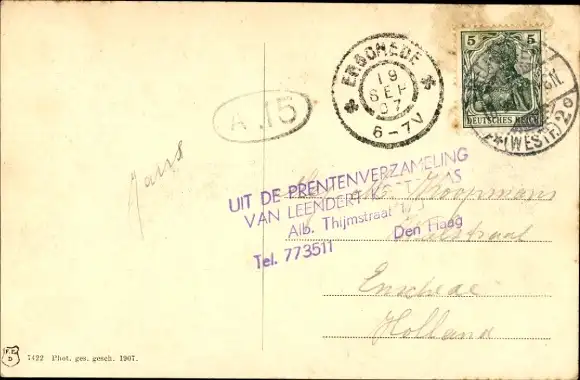 5
DEUTSCHES REICH
* (WESTF.) 2 *
ENSCHEDE
19
SEP
07
6-7V
A.15
UIT DE PRENTENVERZAMELING
VAN LEENDERT
Alb. Thijmstraat
Den Haag
Tel. 773511
Koopmans
Enschede
Holland
7422 Phot. ges. gesch. 1907.